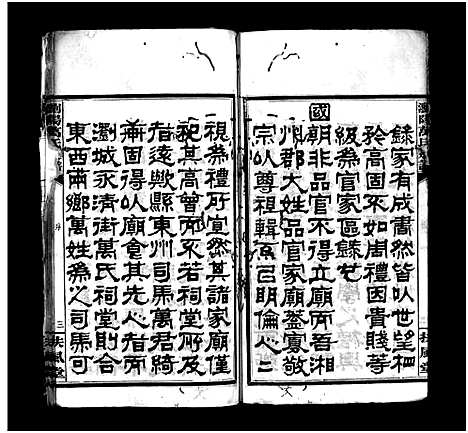 錄家有成書然皆以世望相
矜高固不如周禮因貴賤等
級為官家區錄也
國
朝非品官不得立廟而吾湘
州郡大姓品官家廟盛寡敬
宗以尊祖輯系以明倫人二
視為禮所宜然其諸家廟僅
祀其高曾而不若祠堂所及
指遠歟縣東州司馬萬君綺
齋固得以廟食其先人指南
瀏城永清街萬氏祠堂則合
東西兩鄉萬姓為之司馬可
三
扶風堂